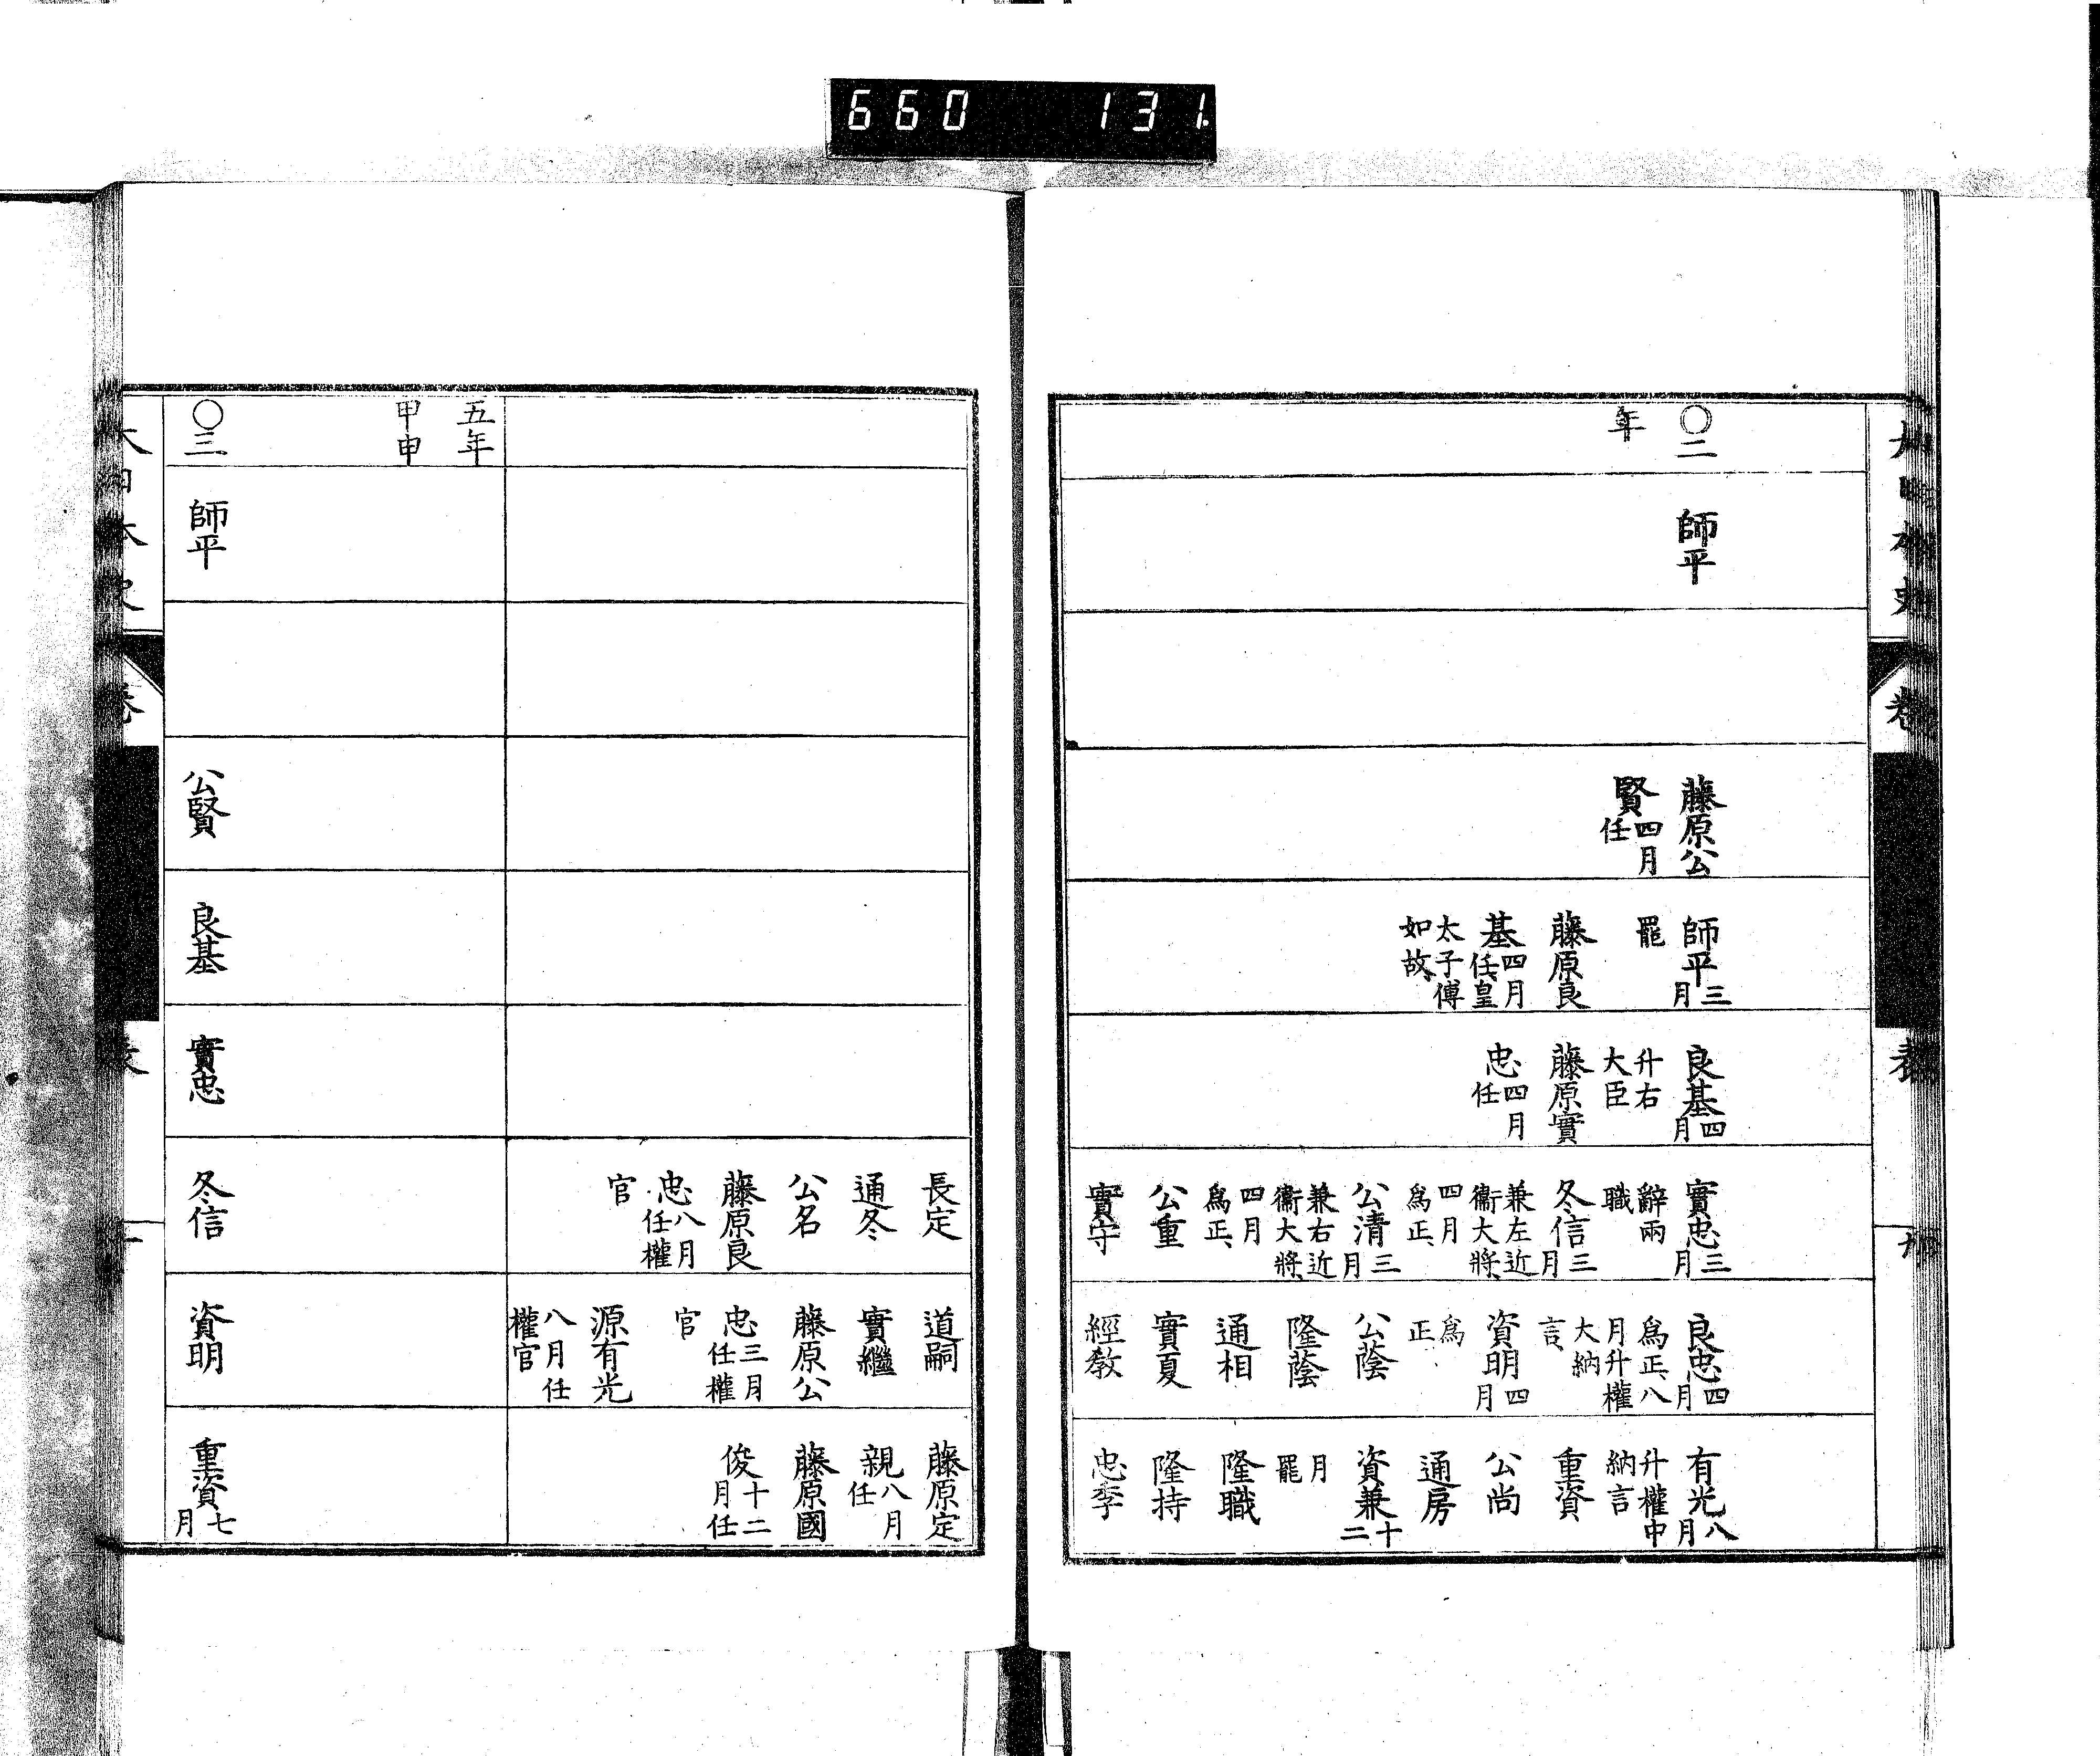 660 131.
〇二
年
師平
藤原公
賢四月
任
師平三月
罷
藤原良
基四月
任、皇
太子傅
如故、
良基四月
升右
大臣
藤原實
忠四月
任
實忠三月
辭兩
職
冬信三月
兼左近
衞大將、
四月
爲正、
公清三月
兼右近
衞大將、
四月
爲正、
公重
實守
良忠四月
爲正、八
月升權
大納
言、
資明四月
爲
正、
公蔭
隆蔭
通相
實夏
經教
有光八月
升權中
納言
重資
公尚
通房
資兼十二
月
罷
隆職
隆持
忠季
長定
通冬
公名
藤原良
忠八月
任權
官
道嗣
實繼
藤原公
忠三月
任權
官
源有光
八月任
權官
藤原定
親八月
任
藤原國
俊十二
月任
五年
甲申
〇三
師平
公賢
良基
實忠
冬信
資明
重資七月
大日本史
卷
表